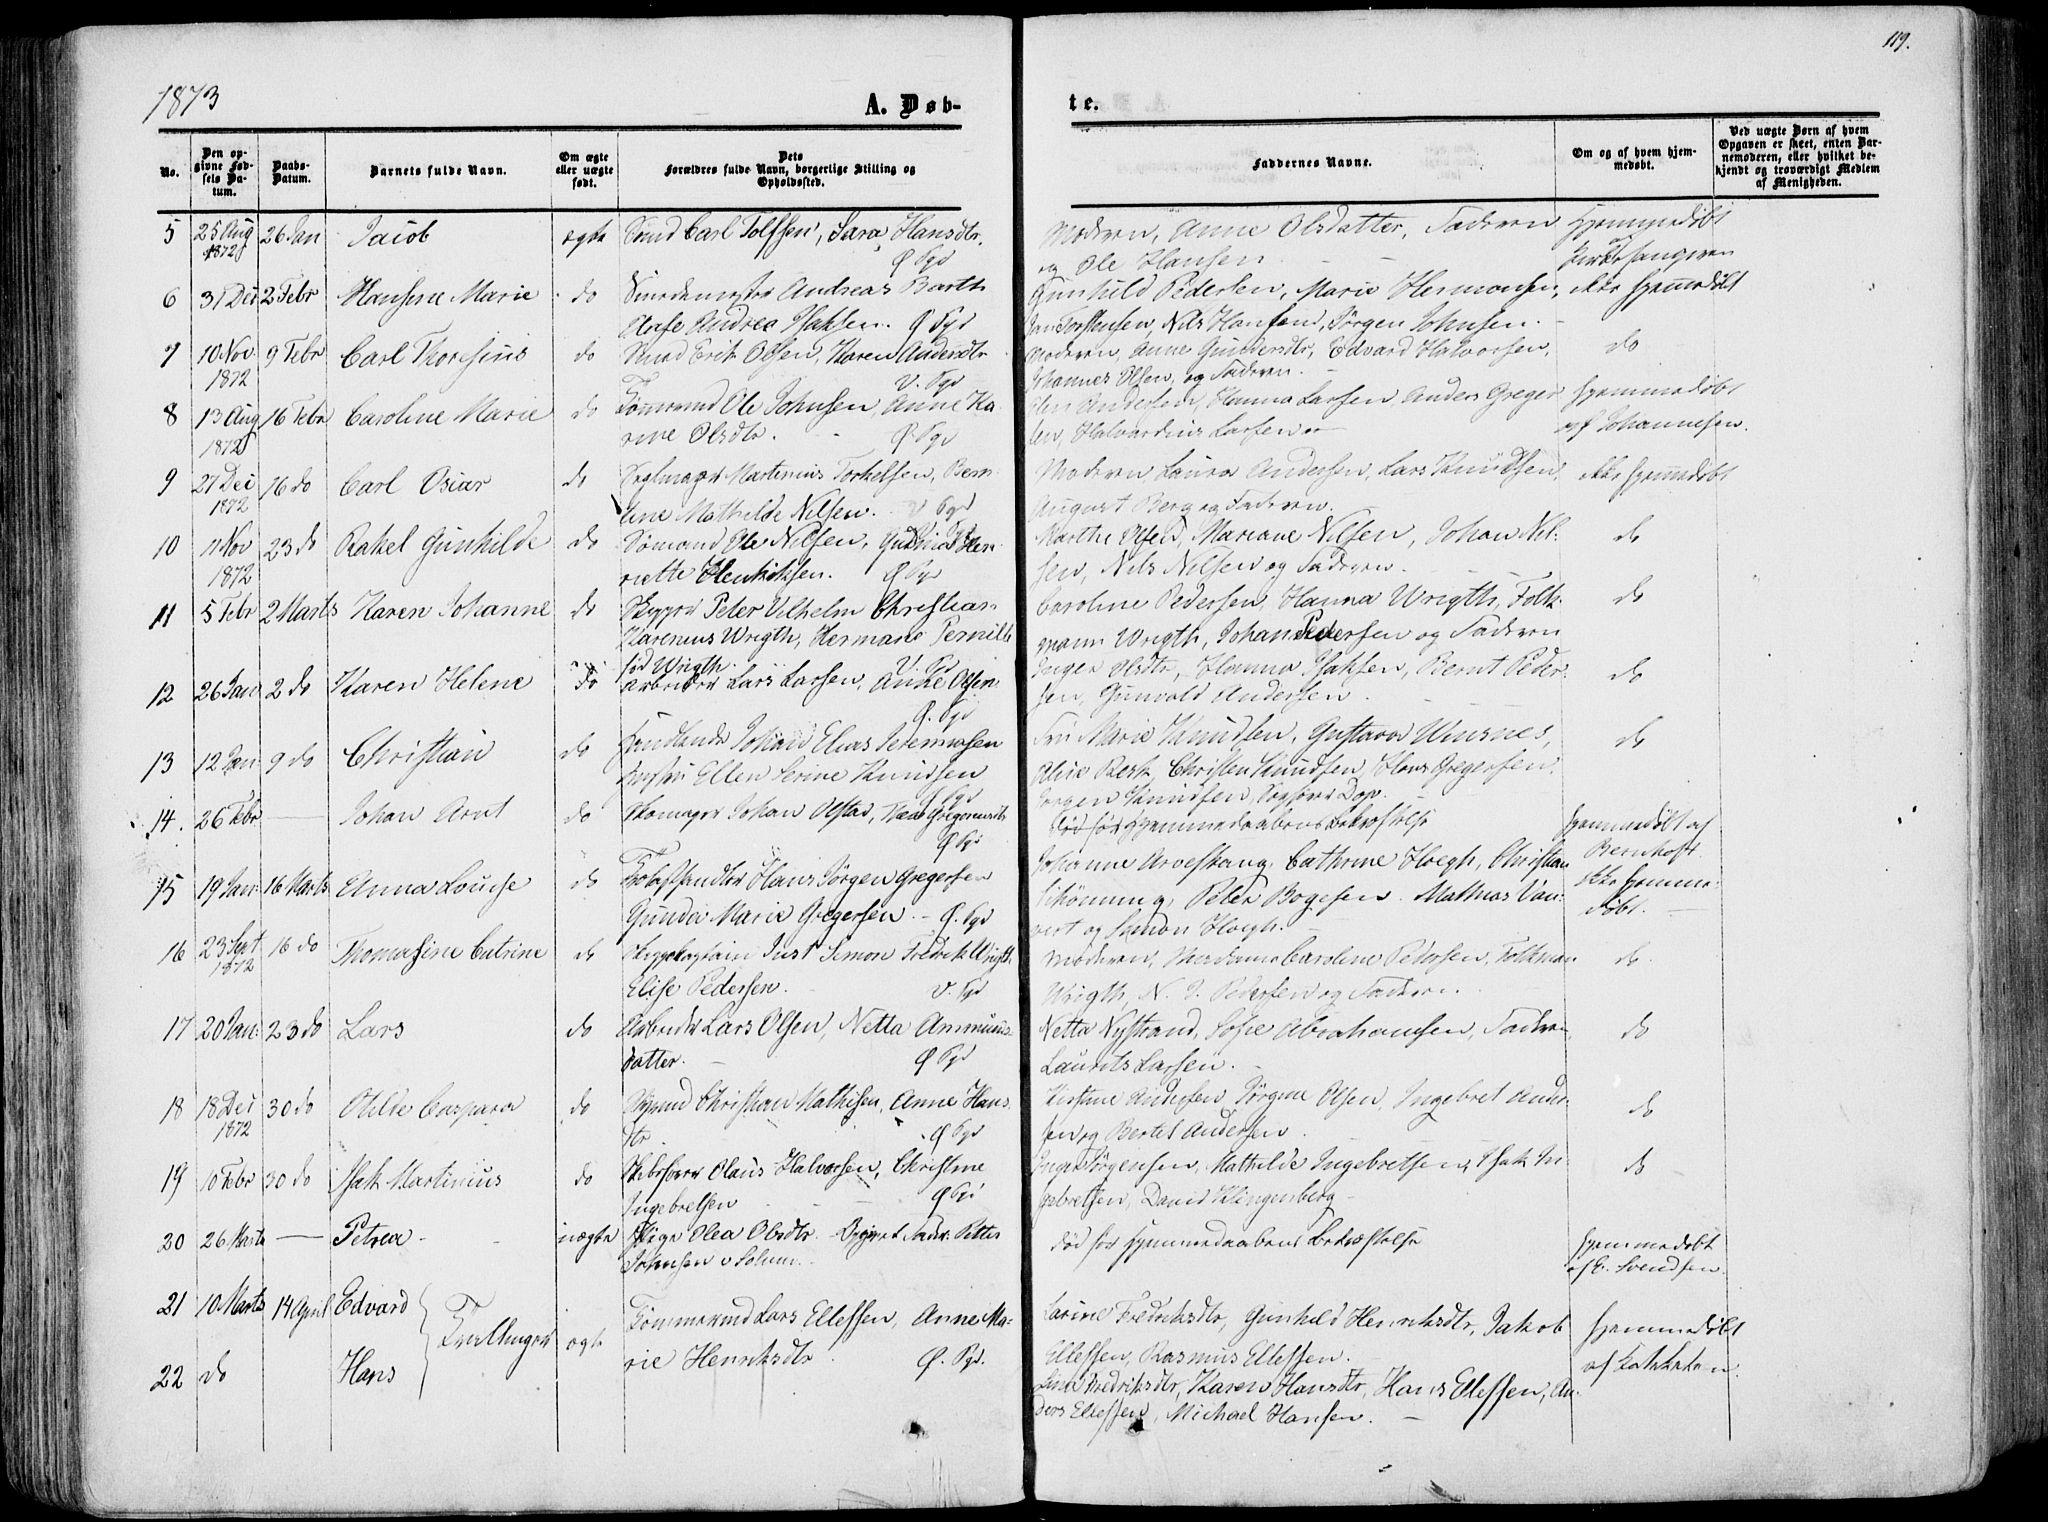 119.
1873 A. Døb- te.
No. Den opgivne Fødsels Datum. Daabs-Datum. Barnets fulde Navn. Om ægte eller uægte født. Dets Forældres fulde Navn, borgerlige Stilling og Opholdssted. Faddernes Navne. Om og af hvem hjemmedøbt. Ved uægte Børn af hvem Opgaven er skeet, enten Barnemoderen, eller hvilket bekjendt og troværdigt Medlem af Menigheden.
5 25 Aug 26 Jan Jacob ægte Carl Tolfsen, Sara Hansdtr. Moderen, Anne Olsdatter, Faderen Hjemmedøbt
1872 Ø Pgd og Ole Hansen af Kirkesangeren
6 31 Dec 2 Febr Hansine Marie do Andreas Barth Gunhild Pedersen, Marie Hermansen, ikke hjemmedøbt
Andrea Isaksen. Ø Pgd Torstensen, Nils Hansen, Jørgen Johnsen.
7 10 Nov 9 Febr Carl Thoresius do Erik Olsen, Karen Andersdtr Moderen, Anne Gundersdtr, Edvard Halvorsen, do
1872 V. Pgd Johannes Olsen, og Faderen.
8 13 Aug 16 Febr Caroline Marie do Tømmermd Ole Johnsen, Anne Ka- Andersen, Hanna Larsen, Anders Greger- Hjemmedøbt
1872 rine Olsdtr. Ø. Pgd sen, Halvardius Larsen af Johannesen.
9 27 Dec 16 do Carl Oscar do Seglmager Martinius Torkelsen, Bern- Moderen, Laura Andersen, Lars Knudsen, ikke hjemmedøbt
1872 tine Mathilde Nilsen. V Pgd August Berg og Faderen.
10 11 Nov 23 do Rakel Gunhilde do Sømand Ole Nilsen, Hen- Marthe Olsen, Mariane Nilsen, Johan Nil- do
1872 riette Henriksen. Ø Pgd sen, Nils Nilsen og Faderen.
11 5 Febr 2 Marts Karen Johanne do Skipper Peter Vilhelm Christian Caroline Pedersen, Hanna Wrigth, Folk- do
Karenius Wrigth, Hermana Pernille mann Wrigth, Johan Pedersen og Faderen
fød Wrigth. V. Pgd
12 26 Jan 2 do Karen Helene do Arbeider Lars Larsen, Anne Olsen Inger Olsdtr, Hanna Isaksen, Bernt Peder- do
Ø. Pgd sen, Gunvald Andersen.
13 12 Jan 9 do Christian do Handlende Johan Elias Jeremiasen Fru Marie Knudsen, Gustava Winsnes, do
Ellen Serine Knudsen Christen Knudsen, Hans Gregersen,
Ø Pgd Jørgen Knudsen,
14. 26 Febr — Johan Arnt do Skomager Johan Olstad, Gregoriusdtr død før Hjemmedaabens Bekræftelse Hjemmedøbt af
Ø Pgd Bernhoft
15 19 Jan 16 Marts Anna Louise do Hans Jørgen Gregersen Johanne Arveskoug, Cathrine Høegh, Christian ikke hjemme-
Gunda Marie Gregersen. – Ø. Pgd Schønning, Peter Bogesen, Mathias Van- døbt.
og Simon Høegh.
16 23 Sept 16 do Thomasine Catrine do Just Simon Fredrik Wrigth, Moderen, Madame Caroline Pedersen, Folkman do
1872 Elise Pedersen. V. Pgd Wrigth, N. J. Pedersen og Faderen.
17 20 Jan: 23 do Lars do Arbeider Lars Olsen, Netta Ammuns- Netta Nystrand, Sofie Abrahamsen, Faderen, do
datter. Ø Pgd Laurits Larsen.
18 18 Dec 30 do Otilde Caspara do Christian Mathisen, Anne Hans- Kirstine Andersen, Jørgine Olsen, Ingebret Ander- do
1872 dtr Ø Pgd sen og Bertel Andersen.
19 10 Febr 30 do Isak Martinius do Olaus Halvorsen, Christine Inger Jørgensen, Mathilde Ingebretsen, Isak In- do
Ingebretsen Ø Pgd gebretsen, David Klingenberg –
20 26 Marts — Petrea uægte Pige Olea Olsdtr. Opgivet Fader: Petter død før Hjemmedaabens Bekræftelse Hjemmedøbt
Johnsen v Solum. af E. Svendsen
21 10 Marts 14 April Edvard Tvillinger ægte Tømmermd Lars Ellefsen, Anne Ma- Larine Fredriksdtr, Gunhild Henriksdtr, Jakob Hjemmedøbt
rie Henriksdtr Ø. Pgd. Ellefsen, Rasmus Ellefsen. af
22 do Hans Fredriksdtr, Karen Hansdtr, Hans Ellefsen, An-
ders Ellefsen, Michael Hansen.